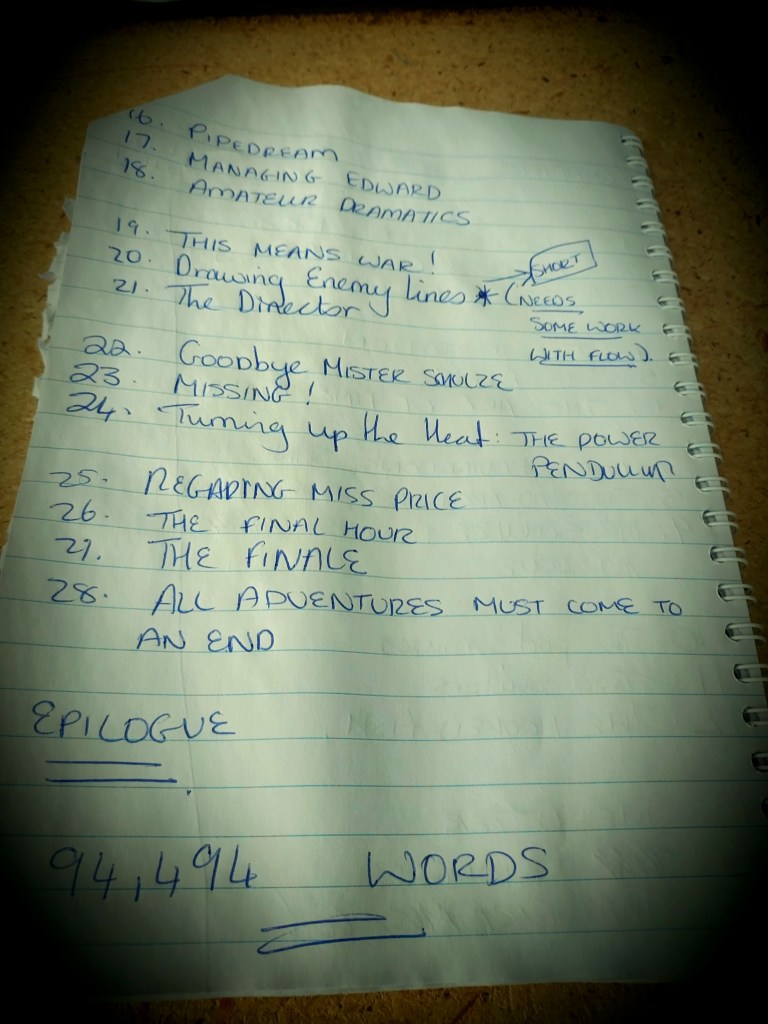 16. PIPEDREAM
17. MANAGING EDWARD
18. AMATEUR DRAMATICS
19. THIS MEANS WAR!
20. Drawing Enemy Lines * (NEEDS SOME WORK WITH FLOW).
SHORT
21. The Director
22. Goodbye MISTER SMULZE
23. MISSING!
24. Turning up the Heat: THE POWER
PENDULUM
25. REGARDING MISS PRICE
26. THE FINAL HOUR
27. THE FINALE
28. ALL ADVENTURES MUST COME TO
AN END
EPILOGUE
94,494 WORDS